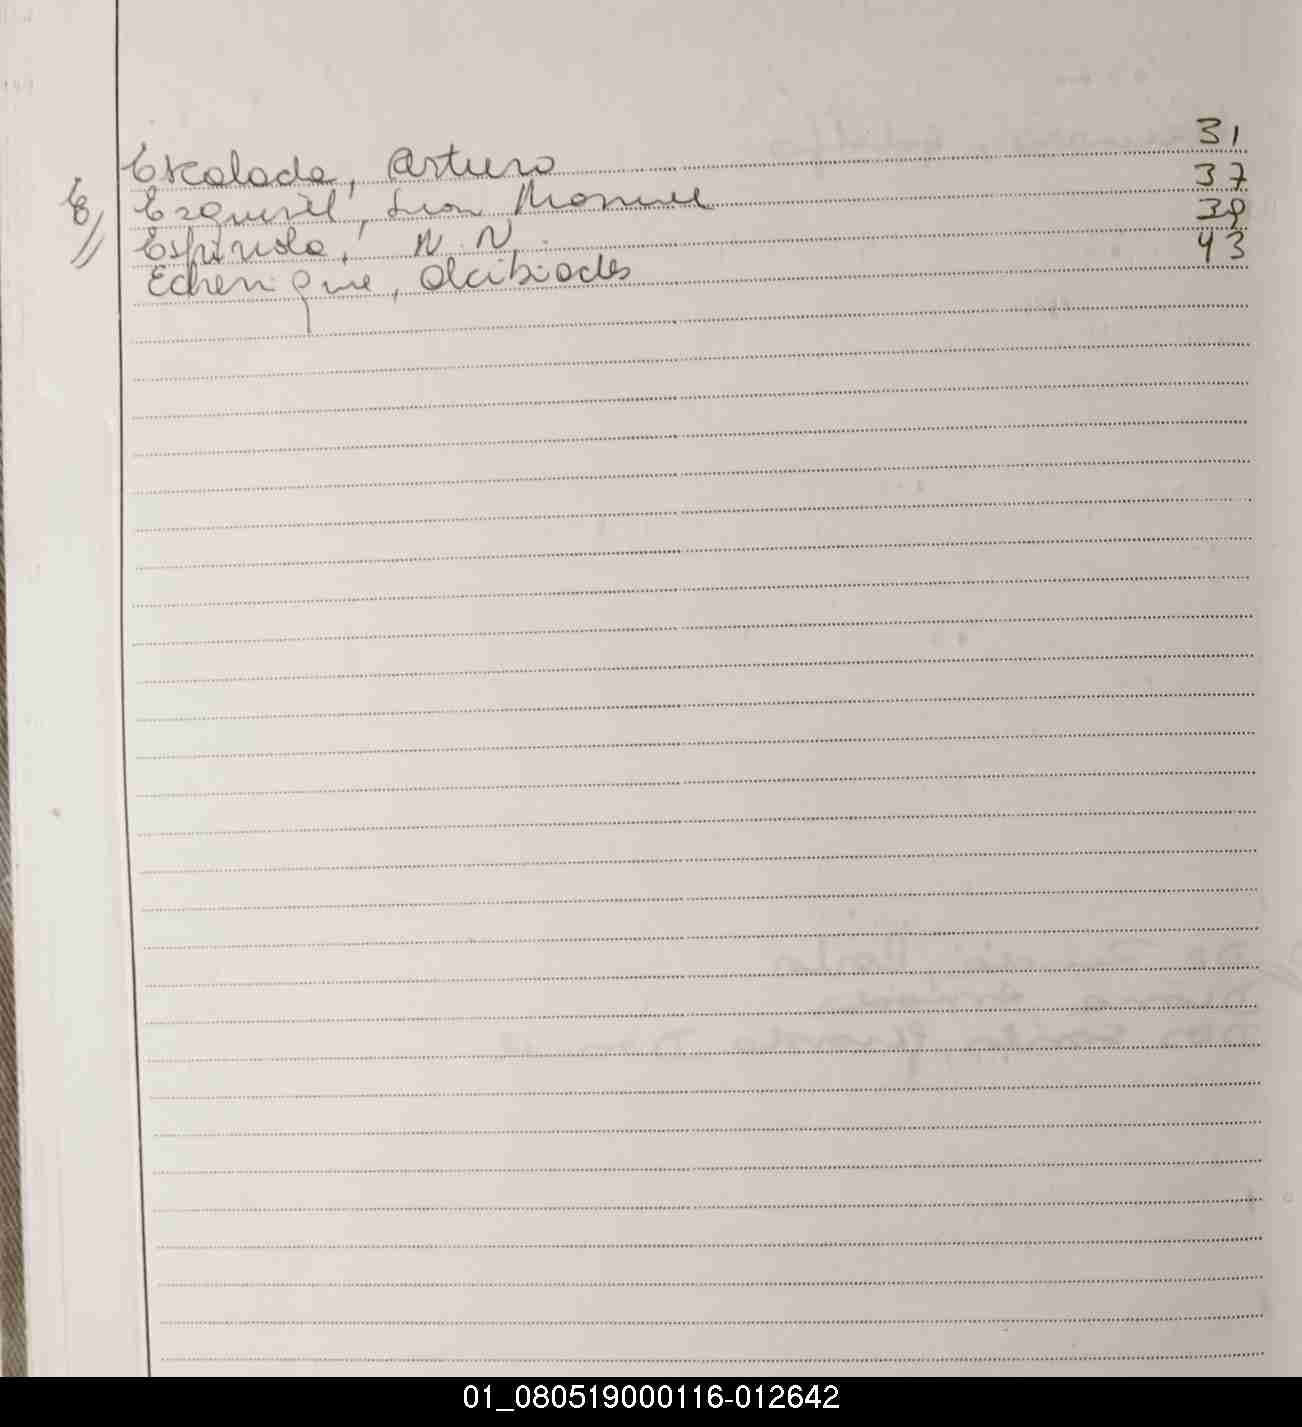 Escalada, Arturo 31
E// Ezquivel, Juan Manuel 37
Espinola, N. N. 39
Echenique, Alcibiades 43
01_080519000116-012642